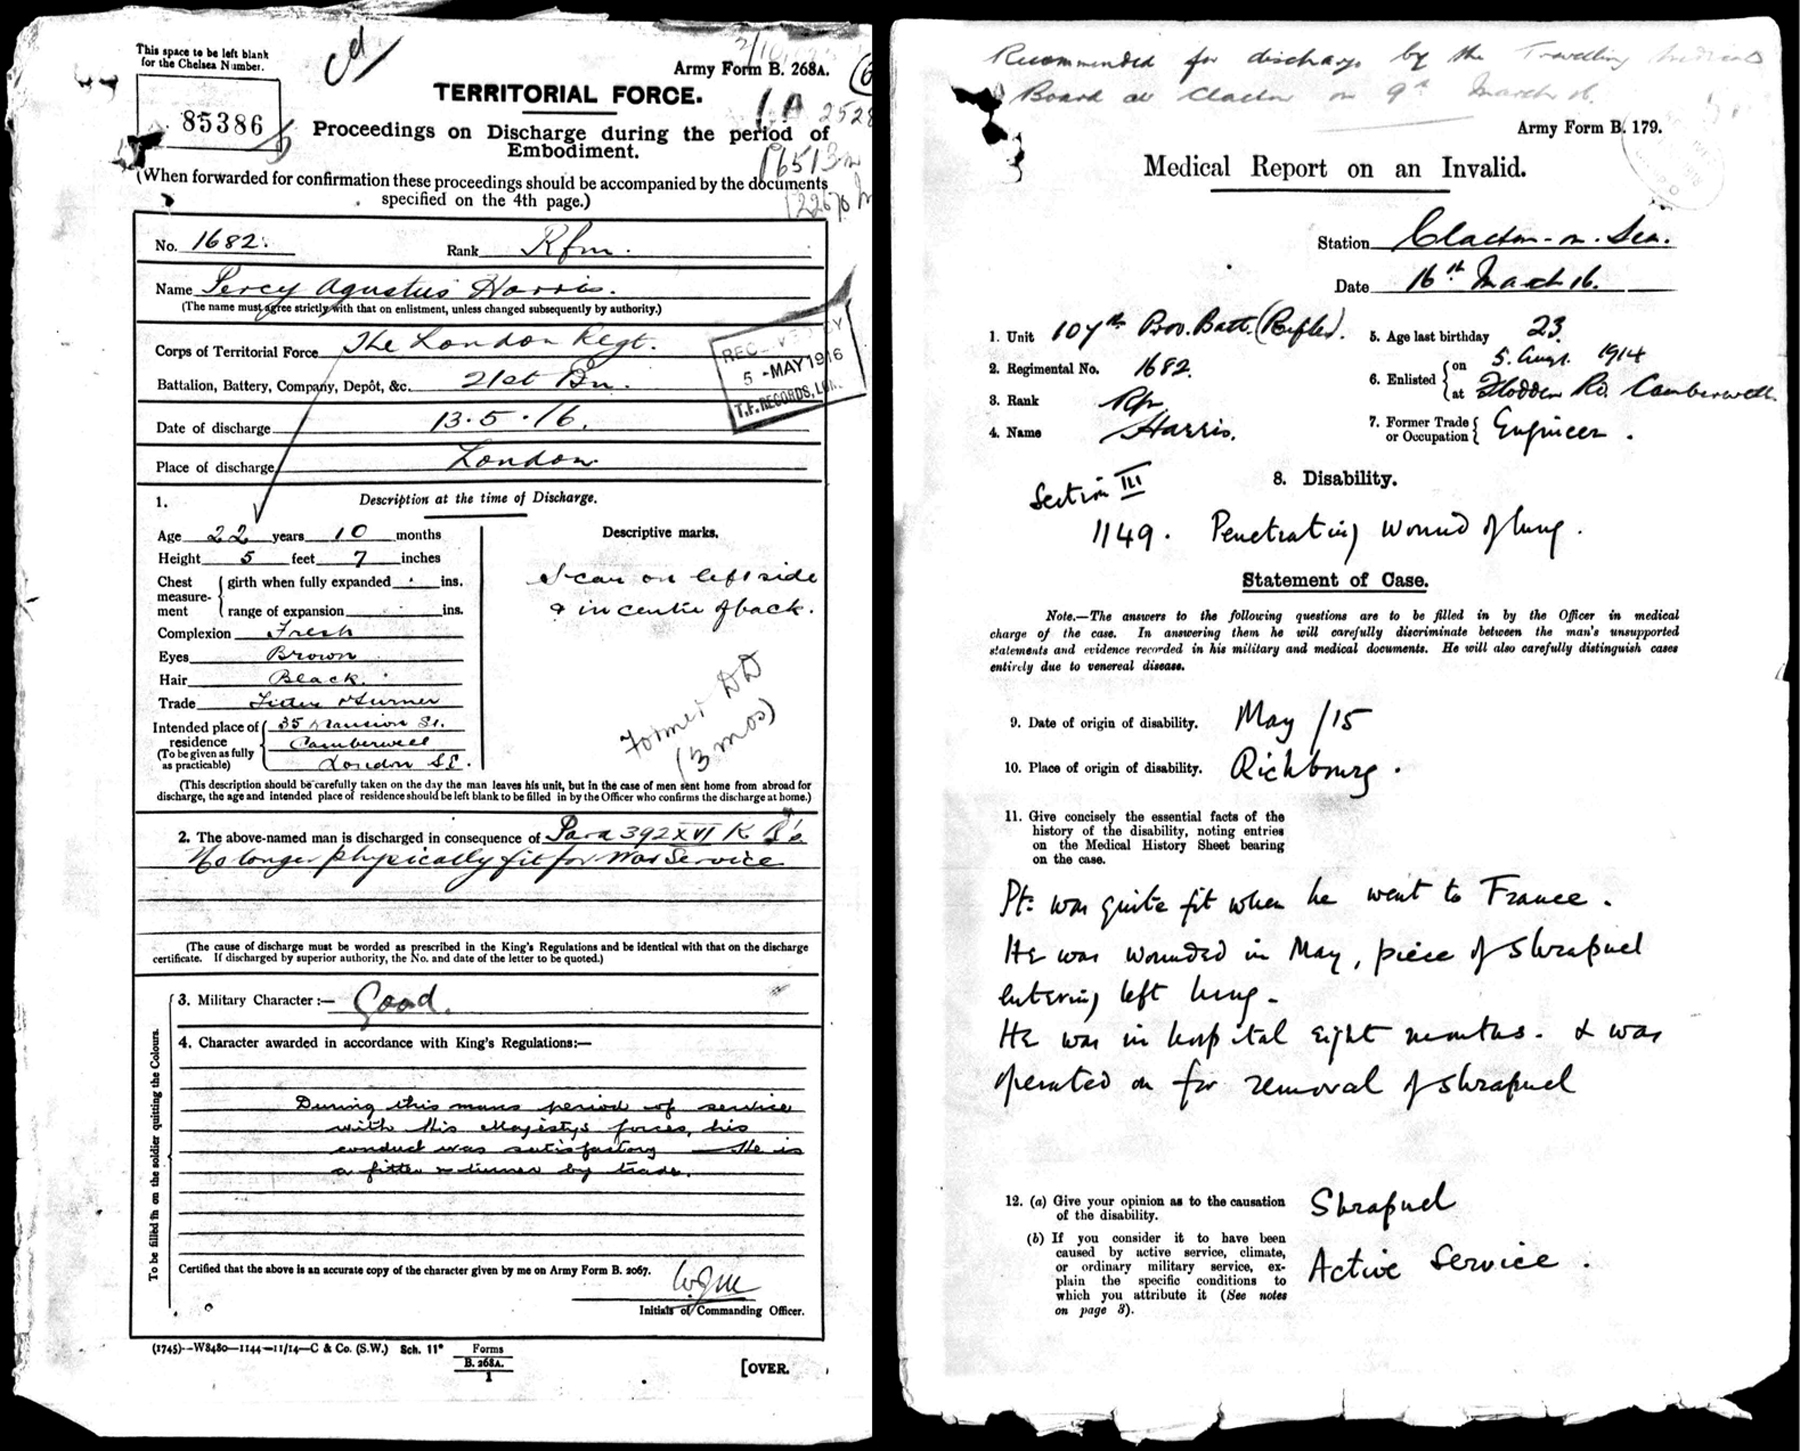 This space to be left blank
for the Chelsea Number.
85386
Army Form B. 268A.
TERRITORIAL FORCE.
Proceedings on Discharge during the period of
Embodiment.
(When forwarded for confirmation these proceedings should be accompanied by the documents
specified on the 4th page.)
No. 1682. Rank Rfm.
Name Percy Agustus Harris.
(The name must agree strictly with that on enlistment, unless changed subsequently by authority.)
Corps of Territorial Force The London Regt.
Battalion, Battery, Company, Depôt, &c. 21st Bn.
5 - MAY 1916
T.F. RECORDS,
Date of discharge 13.5.16.
Place of discharge London
1. Description at the time of Discharge.
Age 22 years 10 months
Height 5 feet 7 inches
Chest measure-ment { girth when fully expanded ins.
range of expansion ins.
Complexion Fresh
Eyes Brown
Hair Black.
Trade Fitter & Turner
Intended place of residence (To be given as fully as practicable) { 35 Mansion St.
Camberwell
London S.E.
Descriptive marks.
Scar on left side
& in centre of back.
Former DD
(3 mos)
(This description should be carefully taken on the day the man leaves his unit, but in the case of men sent home from abroad for
discharge, the age and intended place of residence should be left blank to be filled in by the Officer who confirms the discharge at home.)
2. The above-named man is discharged in consequence of Para 392 XVI K R's
No longer physically fit for War Service
(The cause of discharge must be worded as prescribed in the King's Regulations and be identical with that on the discharge
certificate. If discharged by superior authority, the No. and date of the letter to be quoted.)
To be filled in on the soldier quitting the Colours.
3. Military Character :— Good.
4. Character awarded in accordance with King's Regulations:—
During this mans period of service
with His Majesty's forces, his
conduct was satisfactory — He is
a fitter & turner by trade.
Certified that the above is an accurate copy of the character given by me on Army Form B. 2067.
Initials of Commanding Officer.
(1745)--W8480—1144—11/14—C & Co. (S.W.) Sch. 11
Forms
B. 268A.
1
[OVER.
Recommended for discharge by the Travelling Medical
Board at Clacton on 9th March 16.
Army Form B. 179.
Medical Report on an Invalid.
Station Clacton-on-Sea.
Date 16th March 16.
1. Unit 107th Prov. Batt. (Rifles).
2. Regimental No. 1682.
3. Rank Rfn
4. Name Harris.
5. Age last birthday 23.
6. Enlisted { on 5. Augt. 1914
at Flodden Rd. Camberwell.
7. Former Trade or Occupation { Engineer.
Section III
8. Disability.
1149. Penetrating wound of lung.
Statement of Case.
Note.—The answers to the following questions are to be filled in by the Officer in medical
charge of the case. In answering them he will carefully discriminate between the man's unsupported
statements and evidence recorded in his military and medical documents. He will also carefully distinguish cases
entirely due to venereal disease.
9. Date of origin of disability. May /15
10. Place of origin of disability. Richbourg.
11. Give concisely the essential facts of the
history of the disability, noting entries
on the Medical History Sheet bearing
on the case.
Pt. was quite fit when he went to France.
He was wounded in May, piece of shrapnel
entering left lung.
He was in hospital eight months. & was
operated on for removal of shrapnel
12. (a) Give your opinion as to the causation
of the disability.
Shrapnel
(b) If you consider it to have been
caused by active service, climate,
or ordinary military service, ex-
plain the specific conditions to
which you attribute it (See notes
on page 3).
Active Service.